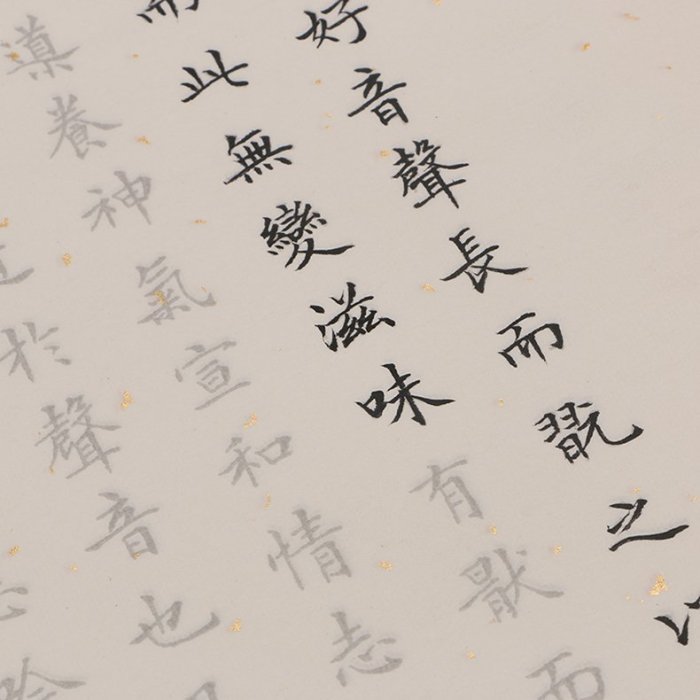 好音聲長而翫之以
而此無變滋味有猒而
導養神氣宣和情志
近於聲音也